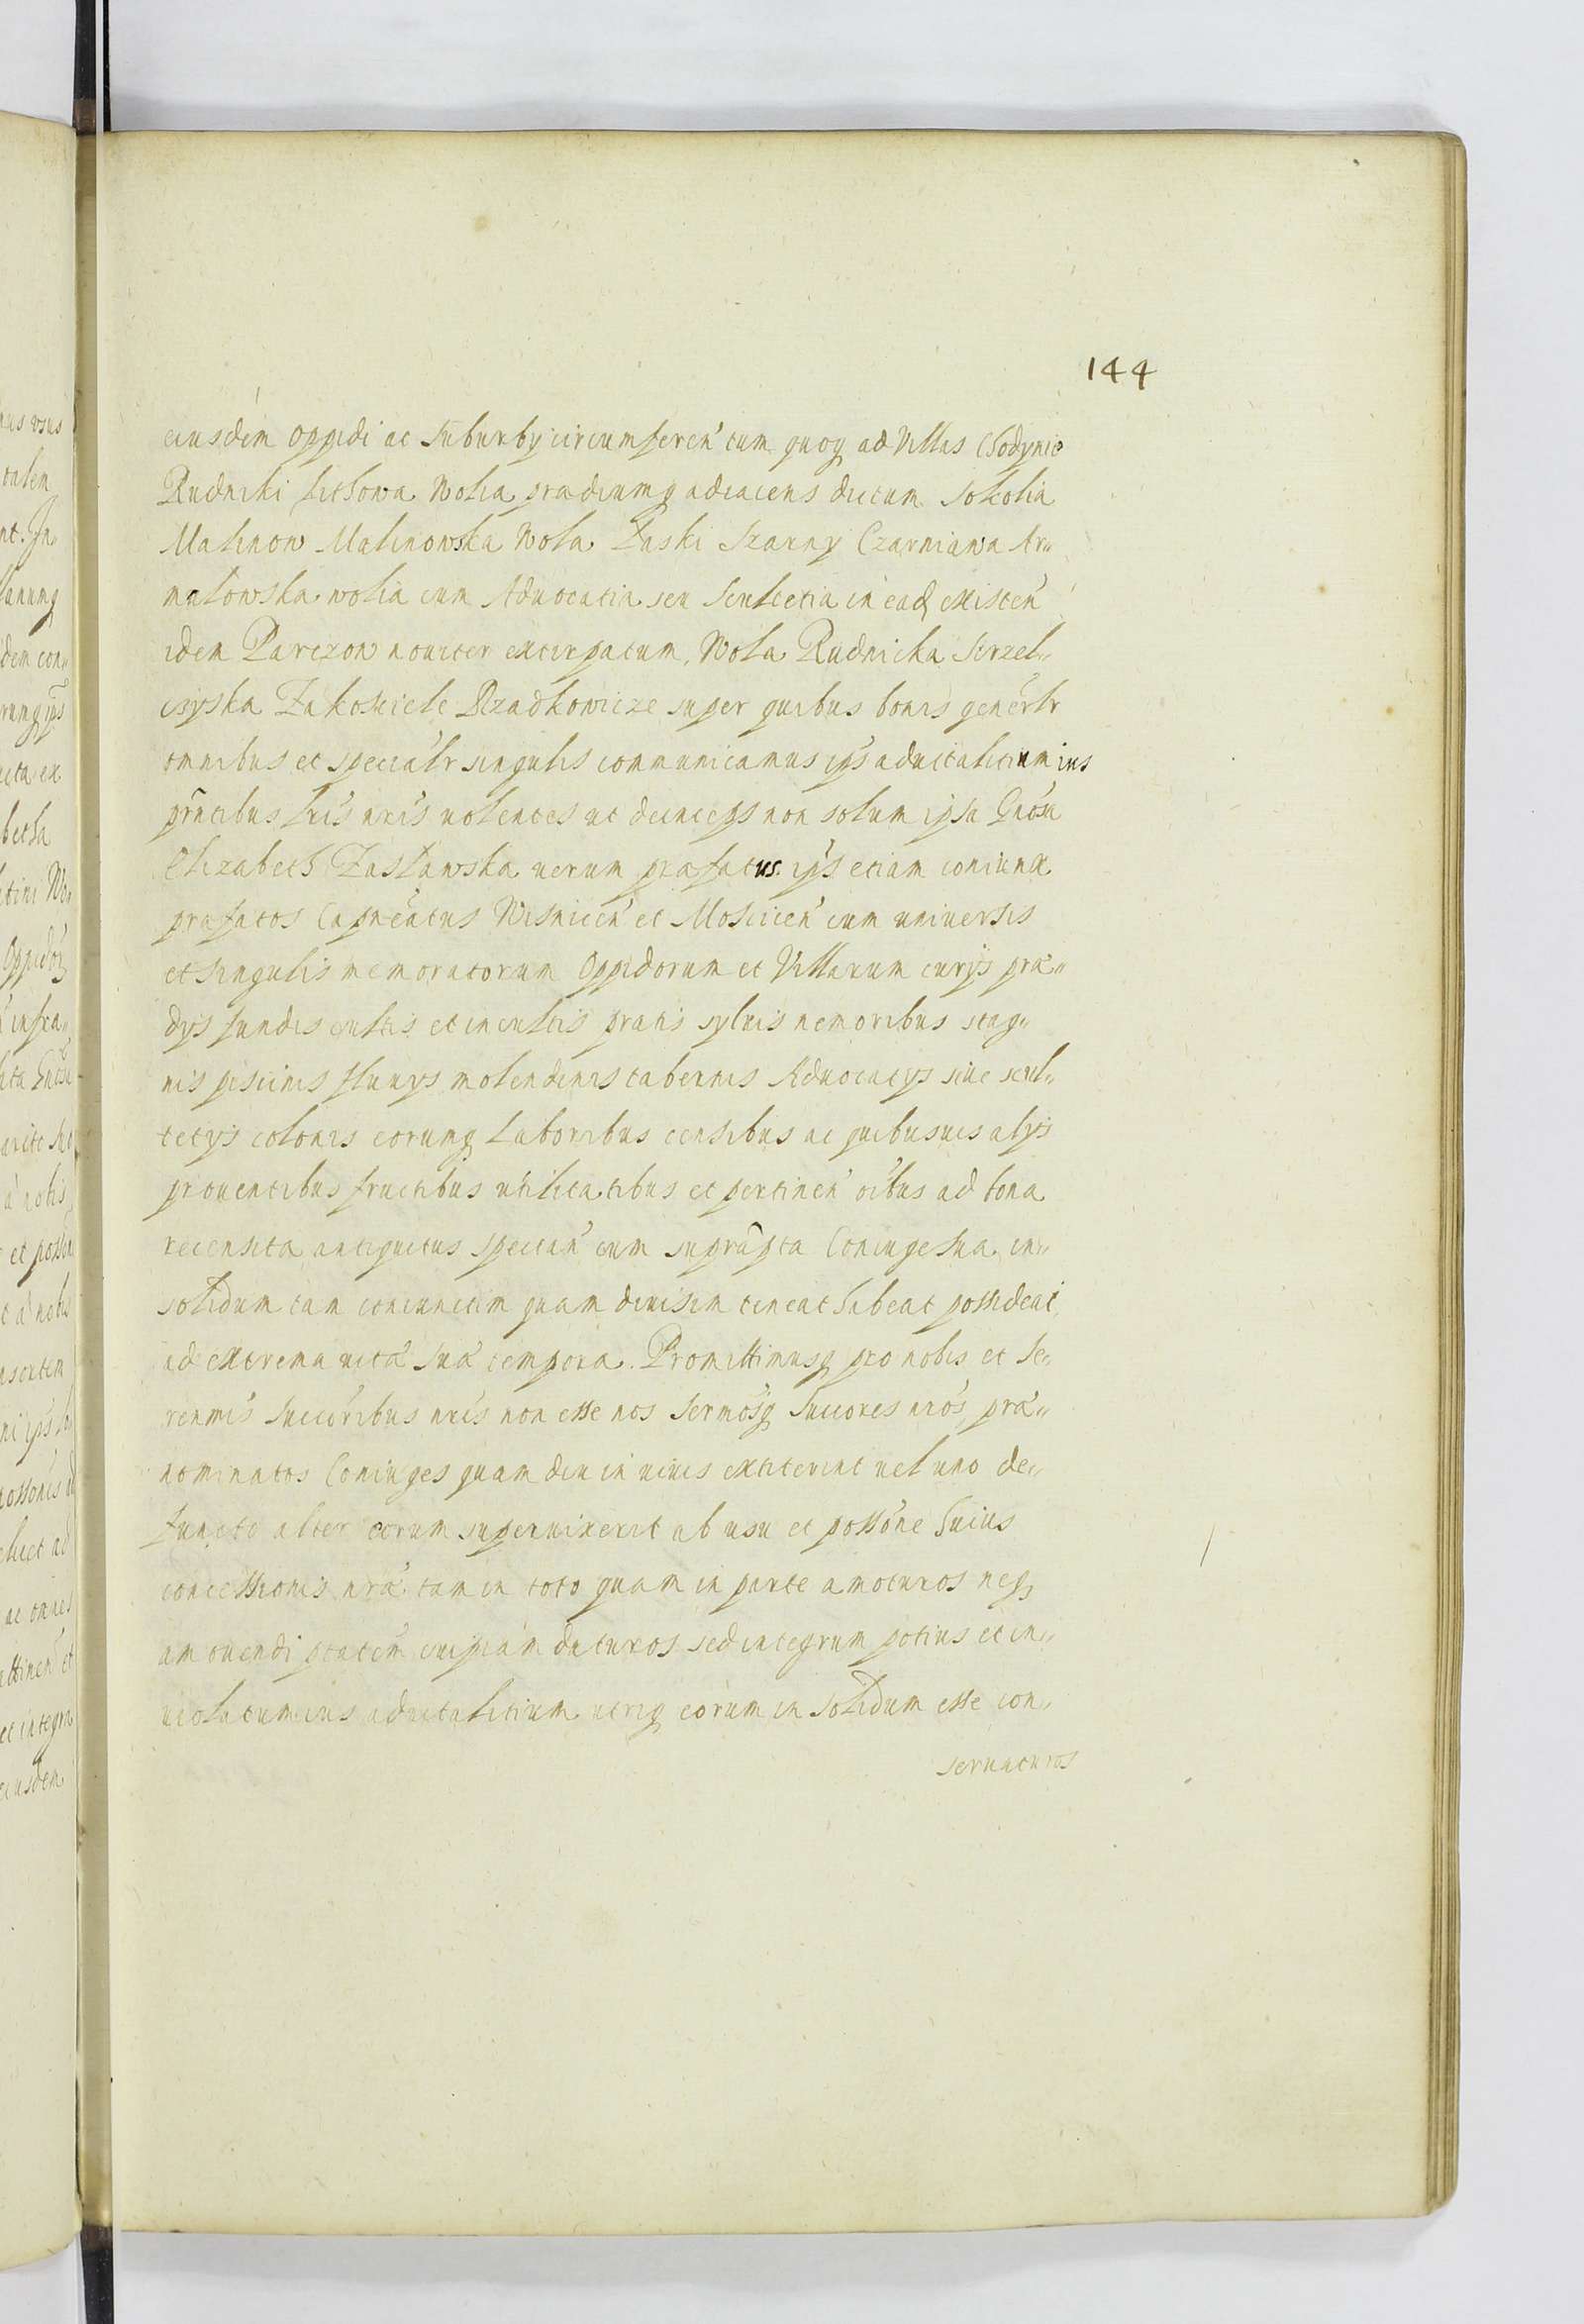 144
eiusdem Oppidi ac suburbij circumferen' tum quoq ad Villas Chodynie
Rudniki Lithowa Wolia prædiumq adiacens dictum Sokolia
Malinow Malinowska Wola Laski Szarny Czarniawa Ar„
matowska wolia cum Aduocatia seu Scultetia in ead existen'
idem Parczow nouiter extirpatum, Wola Rudnicka Strzel„
czyska Zakosciele Dzadkowicze super quibus bonis genērlr
omnibus et speciālr singulis communicamus ips aduitalitium ius
pn̄tibus lr̄is nr̄is uolentes ut deinceps non solum ipsa Gnosa
Elizabeth Zasławska uerum præfatus ips etiam coniunx
præfatos Capneatus Wisnicen' et Moscicen' cum uniuersis
et singulis memoratorum Oppidorum et Villarum curijs præ„
dijs fundis cultis et incultis pratis syluis nemoribus stag„
nis piscinis fluuijs molendinis tabernis Aduocatijs siue scul„
tetijs colonis eorumq Laboribus censibus ac quibusuis alijs
prouentibus fructibus utilitatibus et pertinen' oibus ad bona
recensita antiquitus spectan' cum suprapta Coniuge sua in„
solidum tam coniunctim quam diuisim teneat habeat possideat
ad extrema uitæ suæ tempora. Promittimusq pro nobis et Se„
renmis Succoribus nr̄is non esse nos Sermosq Succores nr̄os, præ„
nominatos Coniuges quam diu in uiuis extiterint uel uno de„
functo alter eorum superuixerit ab usu et possone huius
concessionis nræ tam in toto quam in parte amoturos neq
amouendi ptatem cuipiam daturos sed integrum potius et in„
uiolatum ius aduitalitium utriq eorum in solidum esse con„
seruaturos